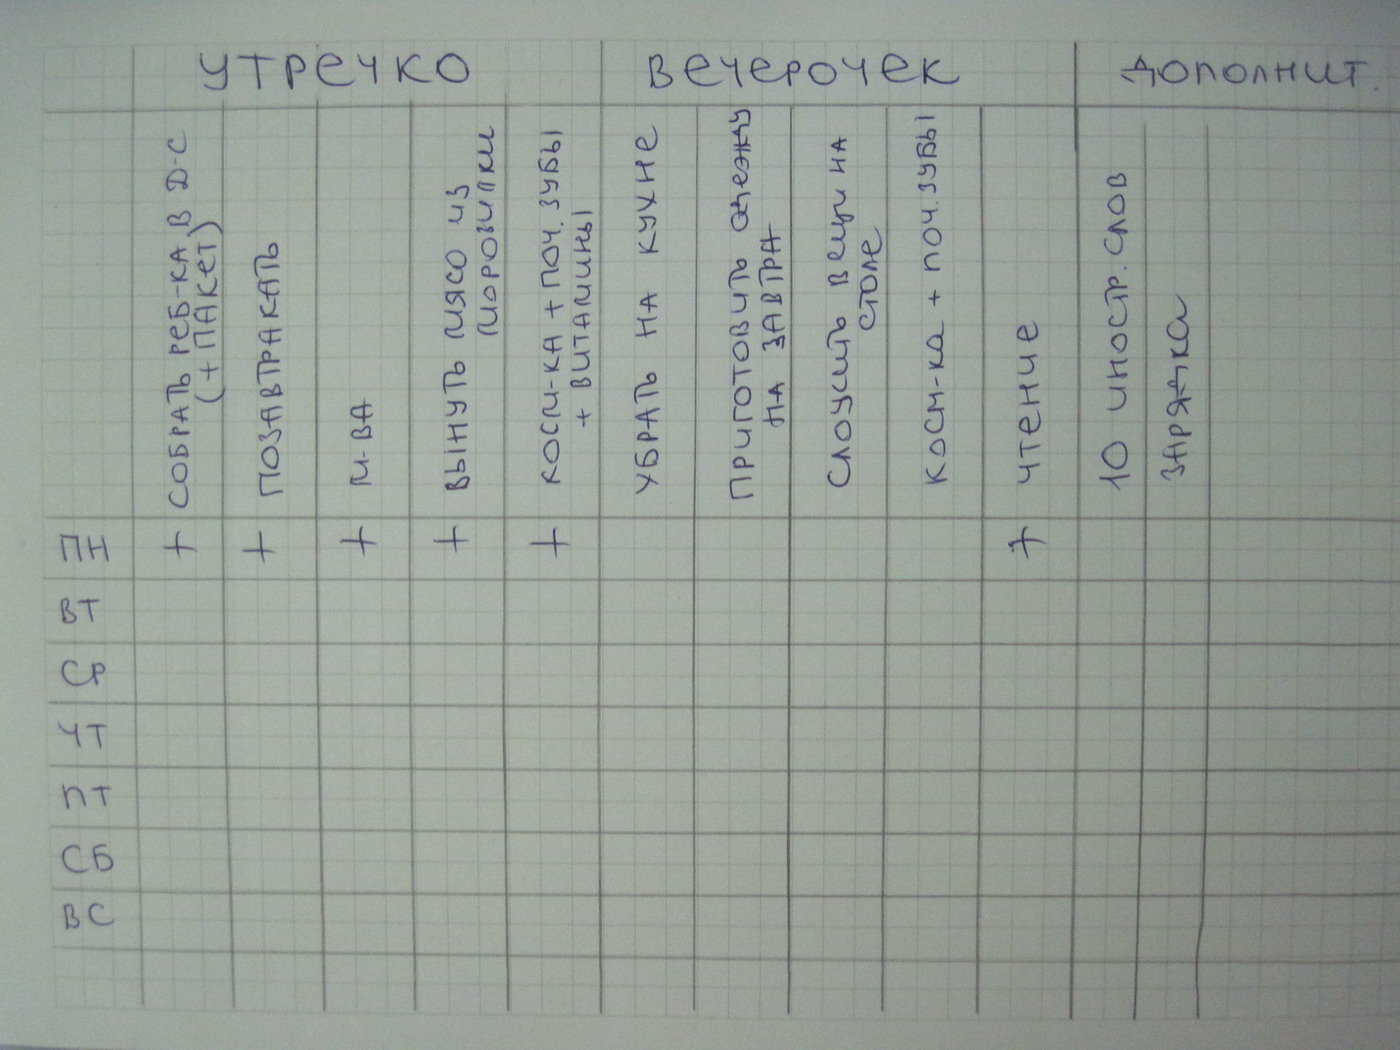 УТРЕЧКО
ВЕЧЕРОЧЕК
ДОПОЛНИТ.
СОБРАТЬ РЕБ-КА В Д-С
(+ ПАКЕТ)
ПОЗАВТРАКАТЬ
М-ВА
ВЫНУТЬ МЯСО ИЗ
МОРОЗИЛКИ
КОСМ-КА + ПОЧ. ЗУБЫ
+ ВИТАМИНЫ
УБРАТЬ НА КУХНЕ
ПРИГОТОВИТЬ ОДЕЖДУ
НА ЗАВТРА
СЛОЖИТЬ ВЕЩИ НА
СТОЛЕ
КОСМ-КА + ПОЧ. ЗУБЫ
ЧТЕНИЕ
10 ИНОСТР. СЛОВ
ЗАРЯДКА
ПН + + + + + +
ВТ
СР
ЧТ
ПТ
СБ
ВС